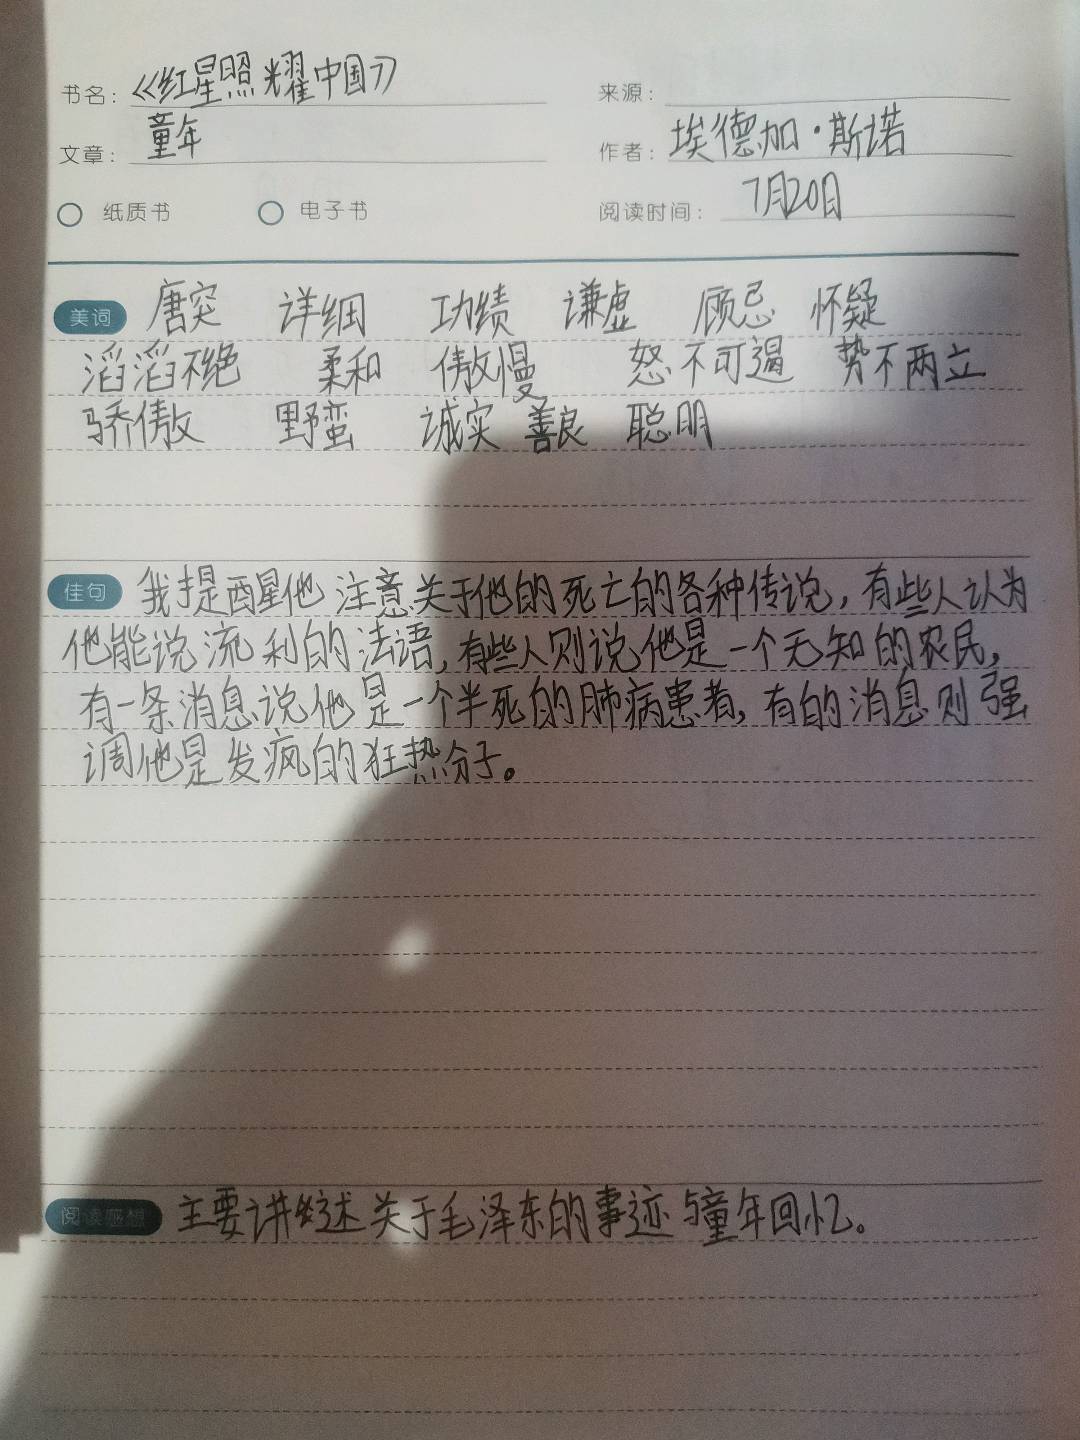 书名：《红星照耀中国》
来源：
文章：童年
作者：埃德加·斯诺
纸质书 电子书
阅读时间：7月20日
美词 唐突 详细 功绩 谦虚 顾忌 怀疑
滔滔不绝 柔和 傲慢 怒不可遏 势不两立
骄傲 野蛮 诚实 善良 聪明
佳句 我提醒他注意关于他的死亡的各种传说，有些人认为
他能说流利的法语，有些人则说他是一个无知的农民，
有一条消息说他是一个半死的肺病患者，有的消息则强
调他是发疯的狂热分子。
阅读感想 主要讲述关于毛泽东的事迹与童年回忆。